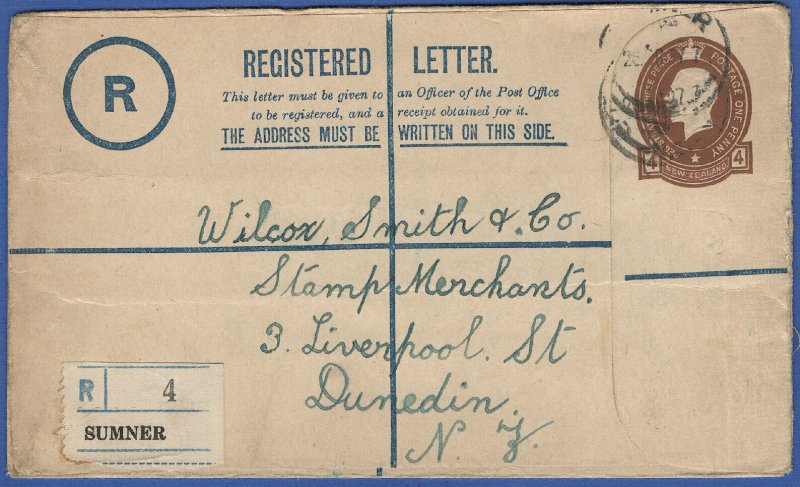 R
REGISTERED LETTER.
This letter must be given to an Officer of the Post Office
to be registered, and a receipt obtained for it.
THE ADDRESS MUST BE WRITTEN ON THIS SIDE.
POSTAGE ONE PENNY
4 4
NEW ZEALAND
Wilcox, Smith & Co.
Stamp Merchants.
3. Liverpool. St
Dunedin.
N. Z.
R 4
SUMNER